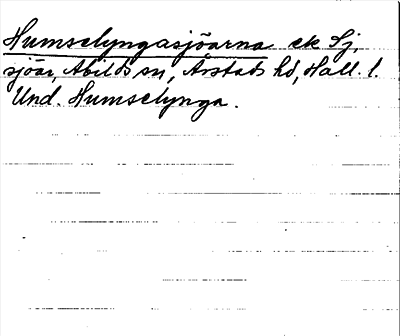 Humselyngasjöarna ek Sj.
sjöar, Abilds sn, Årstads hd, Hall. l.
Und. Humselynga.